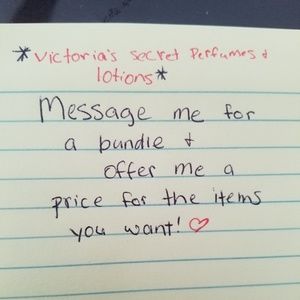 *Victoria's Secret Perfumes &
lotions*
Message me for
a bundle &
offer me a
price for the items
you want! ♡